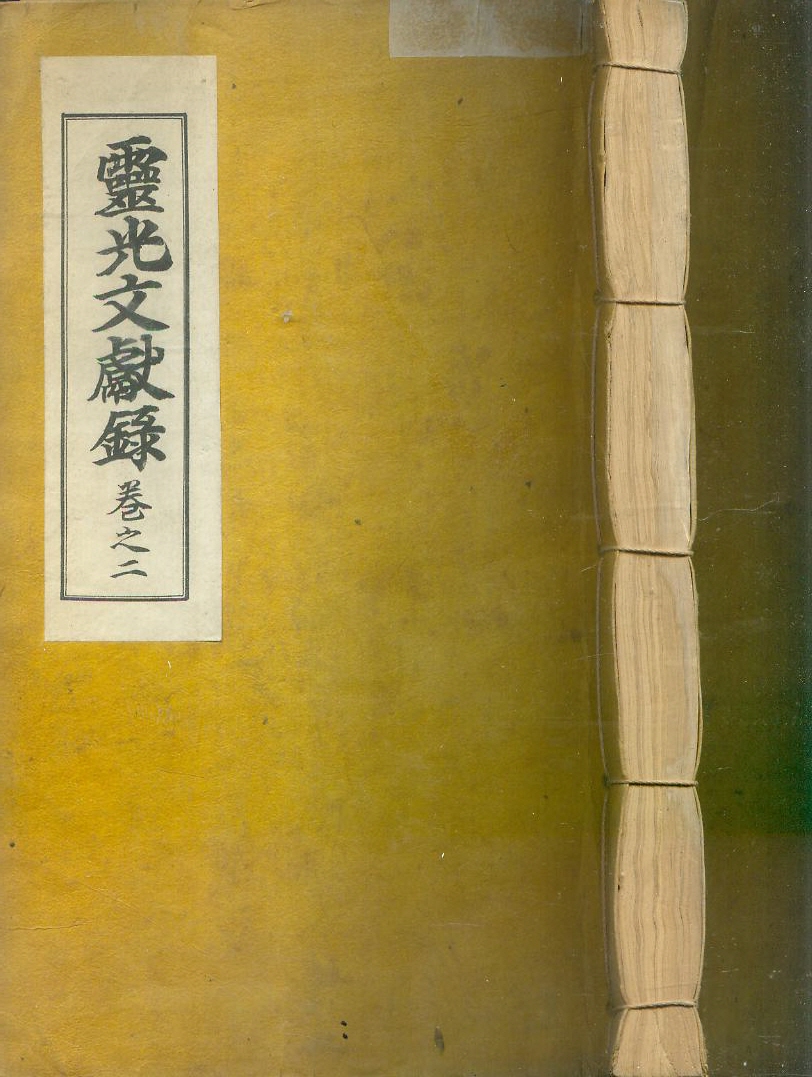 靈光文獻錄 卷之二